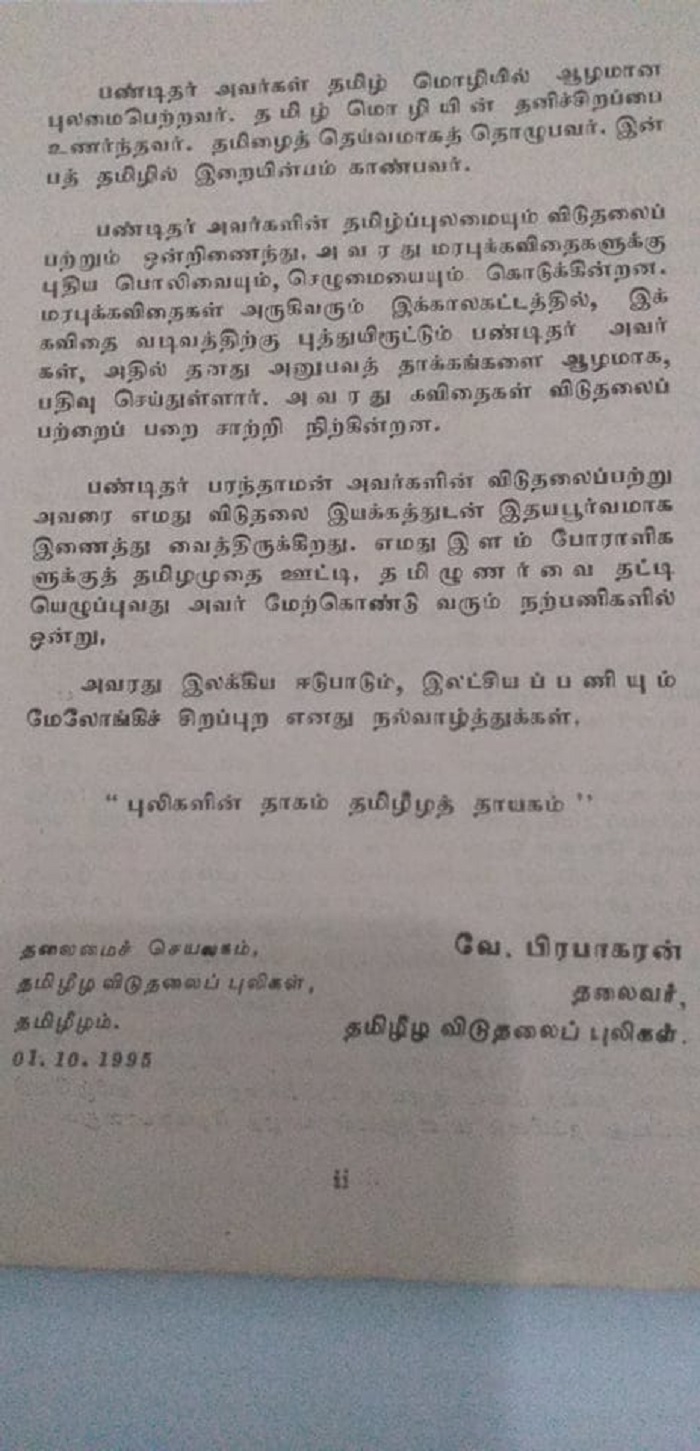 பண்டிதர் அவர்கள் தமிழ் மொழியில் ஆழமான
புலமைபெற்றவர். தமிழ் மொழியின் தனிச்சிறப்பை
உணர்ந்தவர். தமிழைத் தெய்வமாகத் தொழுபவர். இன்
பத் தமிழில் இறையின்பம் காண்பவர்.
பண்டிதர் அவர்களின் தமிழ்ப்புலமையும் விடுதலைப்
பற்றும் ஒன்றிணைந்து, அவரது மரபுக்கவிதைகளுக்கு
புதிய பொலிவையும், செழுமையையும் கொடுக்கின்றன.
மரபுக்கவிதைகள் அருகிவரும் இக்காலகட்டத்தில், இக்
கவிதை வடிவத்திற்கு புத்துயிரூட்டும் பண்டிதர் அவர்
கள், அதில் தனது அனுபவத் தாக்கங்களை ஆழமாக,
பதிவு செய்துள்ளார். அவரது கவிதைகள் விடுதலைப்
பற்றைப் பறை சாற்றி நிற்கின்றன.
பண்டிதர் பரந்தாமன் அவர்களின் விடுதலைப்பற்று
அவரை எமது விடுதலை இயக்கத்துடன் இதயபூர்வமாக
இணைத்து வைத்திருக்கிறது. எமது இளம் போராளிக
ளுக்குத் தமிழமுதை ஊட்டி, தமிழுணர்வை தட்டி
யெழுப்புவது அவர் மேற்கொண்டு வரும் நற்பணிகளில்
ஒன்று,
அவரது இலக்கிய ஈடுபாடும், இலட்சியப்பணியும்
மேலோங்கிச் சிறப்புற எனது நல்வாழ்த்துக்கள்.
“ புலிகளின் தாகம் தமிழீழத் தாயகம் ’’
தலைமைச் செயலகம்,
தமிழீழ விடுதலைப் புலிகள்,
தமிழீழம்.
01. 10. 1995
வே. பிரபாகரன்
தலைவர்,
தமிழீழ விடுதலைப் புலிகள்.
ii